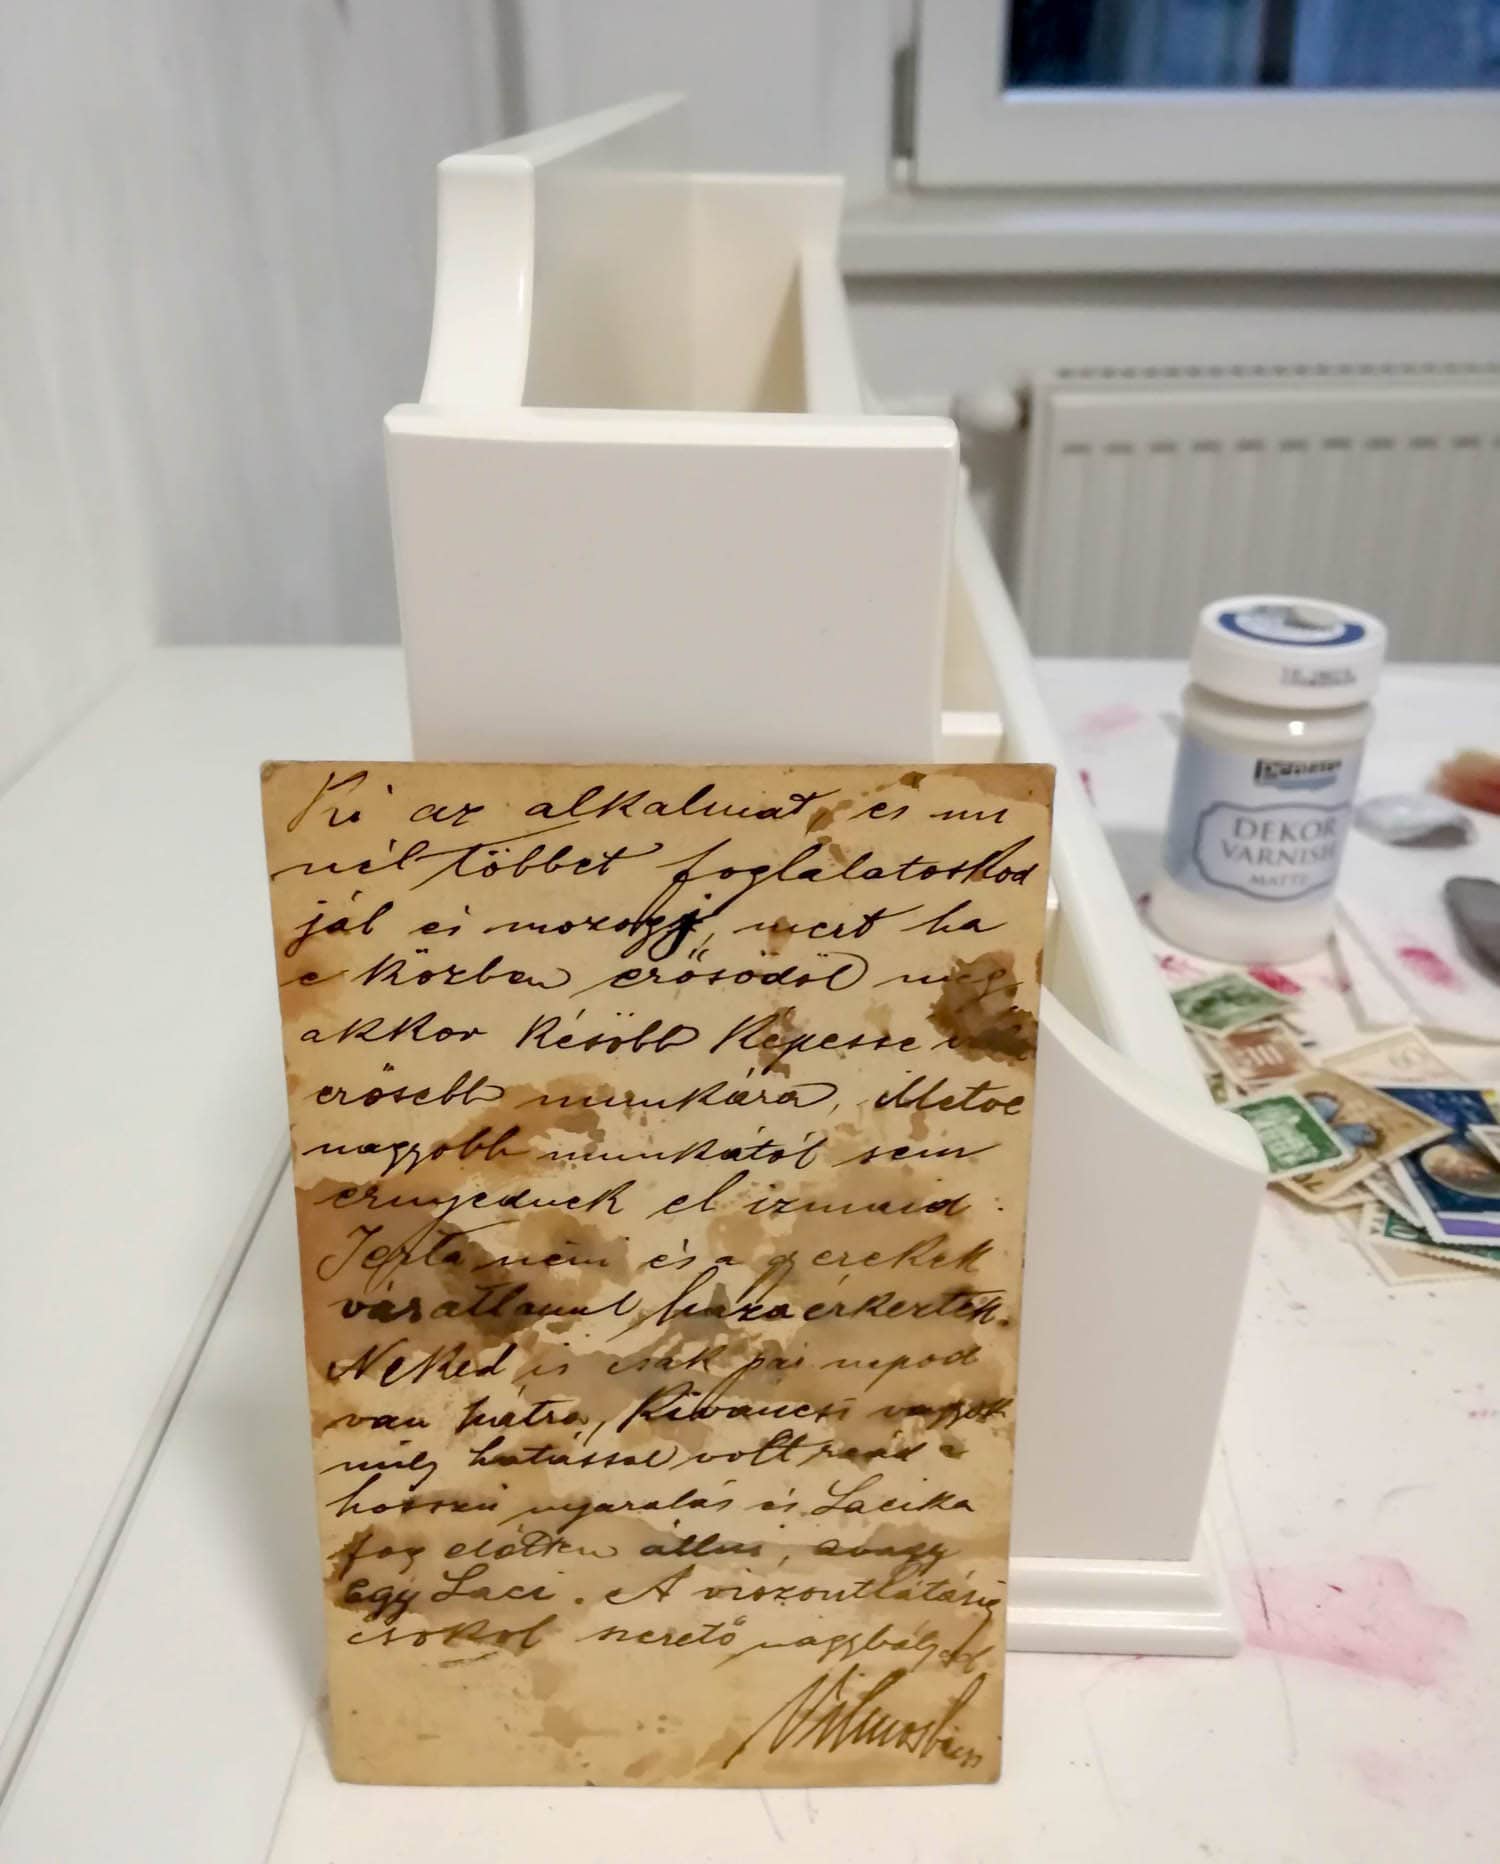 Ki az alkalmat, és mi
nél többet foglalatoskod
jál és mozogj, mert ha
e közben erősödöl meg
akkor később képesse
erősebb munkára, illetve
nagyobb munkától sem
ernyednek el izmaid.
Jerta néni és a gerekek
váratlanul haza érkeztek.
Neked is csak pár napod
van hátra, Kiváncsi vagyok
mily hatással volt reád a
hosszú nyaralás és Lacika
fog előttem állni, avagy
egy Laci. A viszontlátásig
csókol szerető nagybátyád
Vilmosbácsi
DEKOR
VARNISH
MATTE